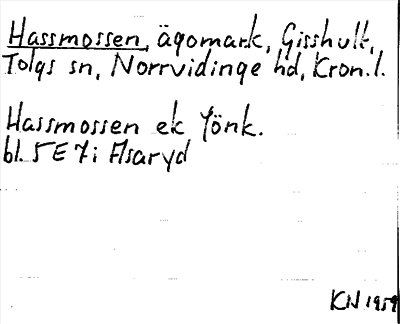 Hassmossen, ägomark, Gisshult,
Tolgs sn, Norrvidinge hd, Kron.l.
Hassmossen ek Jönk.
bl. 5E 7i Asaryd
KN 1959